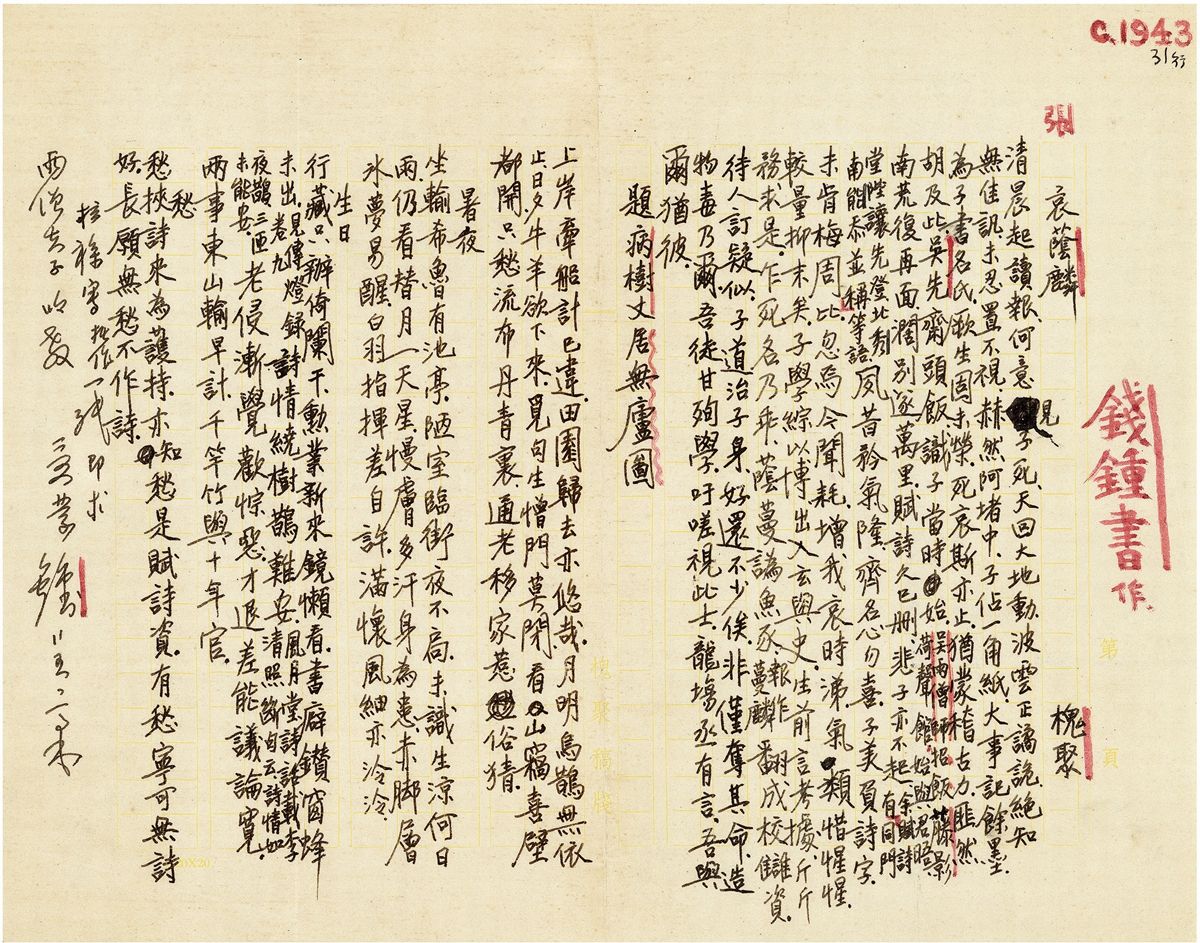 C.1943
31行
錢鍾書作.
張
哀蔭麟
槐聚
清晨起讀報.何意見子死.天回大地動.波雲正譎詭.絕知
無佳訊.未忍置不視.赫然阿堵中.子佔一角紙.大事記餘墨.
為子書名氏.厥生固未榮.死哀斯亦止.猶蒙稽古力.匪然
胡及此.吳先齋頭飯.識子當時始.吳雨僧師招飯藤影荷聲館.始與君晤
南荒復再面.闊別遂萬里.賦詩久已删.悲子亦不起.余賦詩有同門
堂陛讓先登北秀南能忝並稱等語夙昔矜氣隆.齊名心勿喜.子美頁詩字.
未肯梅周比.忽焉今聞耗.增我哀時涕.氣類惜惺惺.
較量抑末矣.子學綜以博.出入玄與史.生前言考據.斤斤
務求是.乍死名乃乖.蔭蔓譌魚豕.報作蔓麟翻成校讎資.
待人訂疑似.子道治子身.好還不少俟.非僅奪其命.造
物毒乃爾.吾徒甘殉學.吁嗟視此士.龍場丞有言.吾與
爾猶彼.
題病樹丈居無廬圖
上岸牽船計已違.田園歸去亦悠哉.月明烏鵲無依
止.日夕牛羊欲下來.覓句生憎門莫閉.看山窩喜壁
都開.只愁流布丹青裏.通老移家惹俗猜.
暑夜
坐輸希魯有池亭.陋室臨街夜不扃.未識生涼何日
雨.仍看替月一天星.慢膚多汗身為患.赤脚層
冰夢易醒.白羽指揮差自許.滿懷風細亦泠泠.
生日
行藏只辦倚闌干.勳業新來鏡懶看.書癖鑽窗蜂
未出.見傳燈錄卷九詩情繞樹鵲難安.風月堂詩話載李清照斷句云詩情如
夜鵲三匝未能安.老侵漸覺歡悰惡.才退差能議論寬.
兩事東山輸早計.千竿竹與十年官.
愁
愁挾詩來為護持.亦知愁是賦詩資.有愁寧可無詩
好.長願無愁不作詩.
拙稿寫拙作一紙即求
雨僧夫子